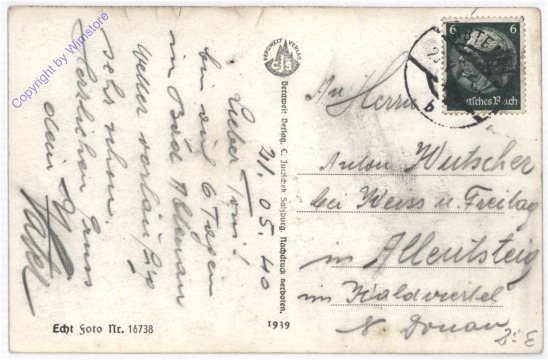 Copyright by Wimstore
21. 05. 40
Lieber Toni!
bin auf 6 Tagen
in Bad
Wetter vorläufig
sehr schön.
Herzlichen Gruss
dein
Vater
Echt Foto Nr. 16738
BERGWELT VERLAG
Bergwelt Verlag, C. Jurischek Salzburg. Nachdruck verboten.
1939
6 6
Deutsches Reich
b
An Herrn
Anton Wutscher
bei Weiss u. Freitag
in Allentsteig
im Waldviertel
N. Donau